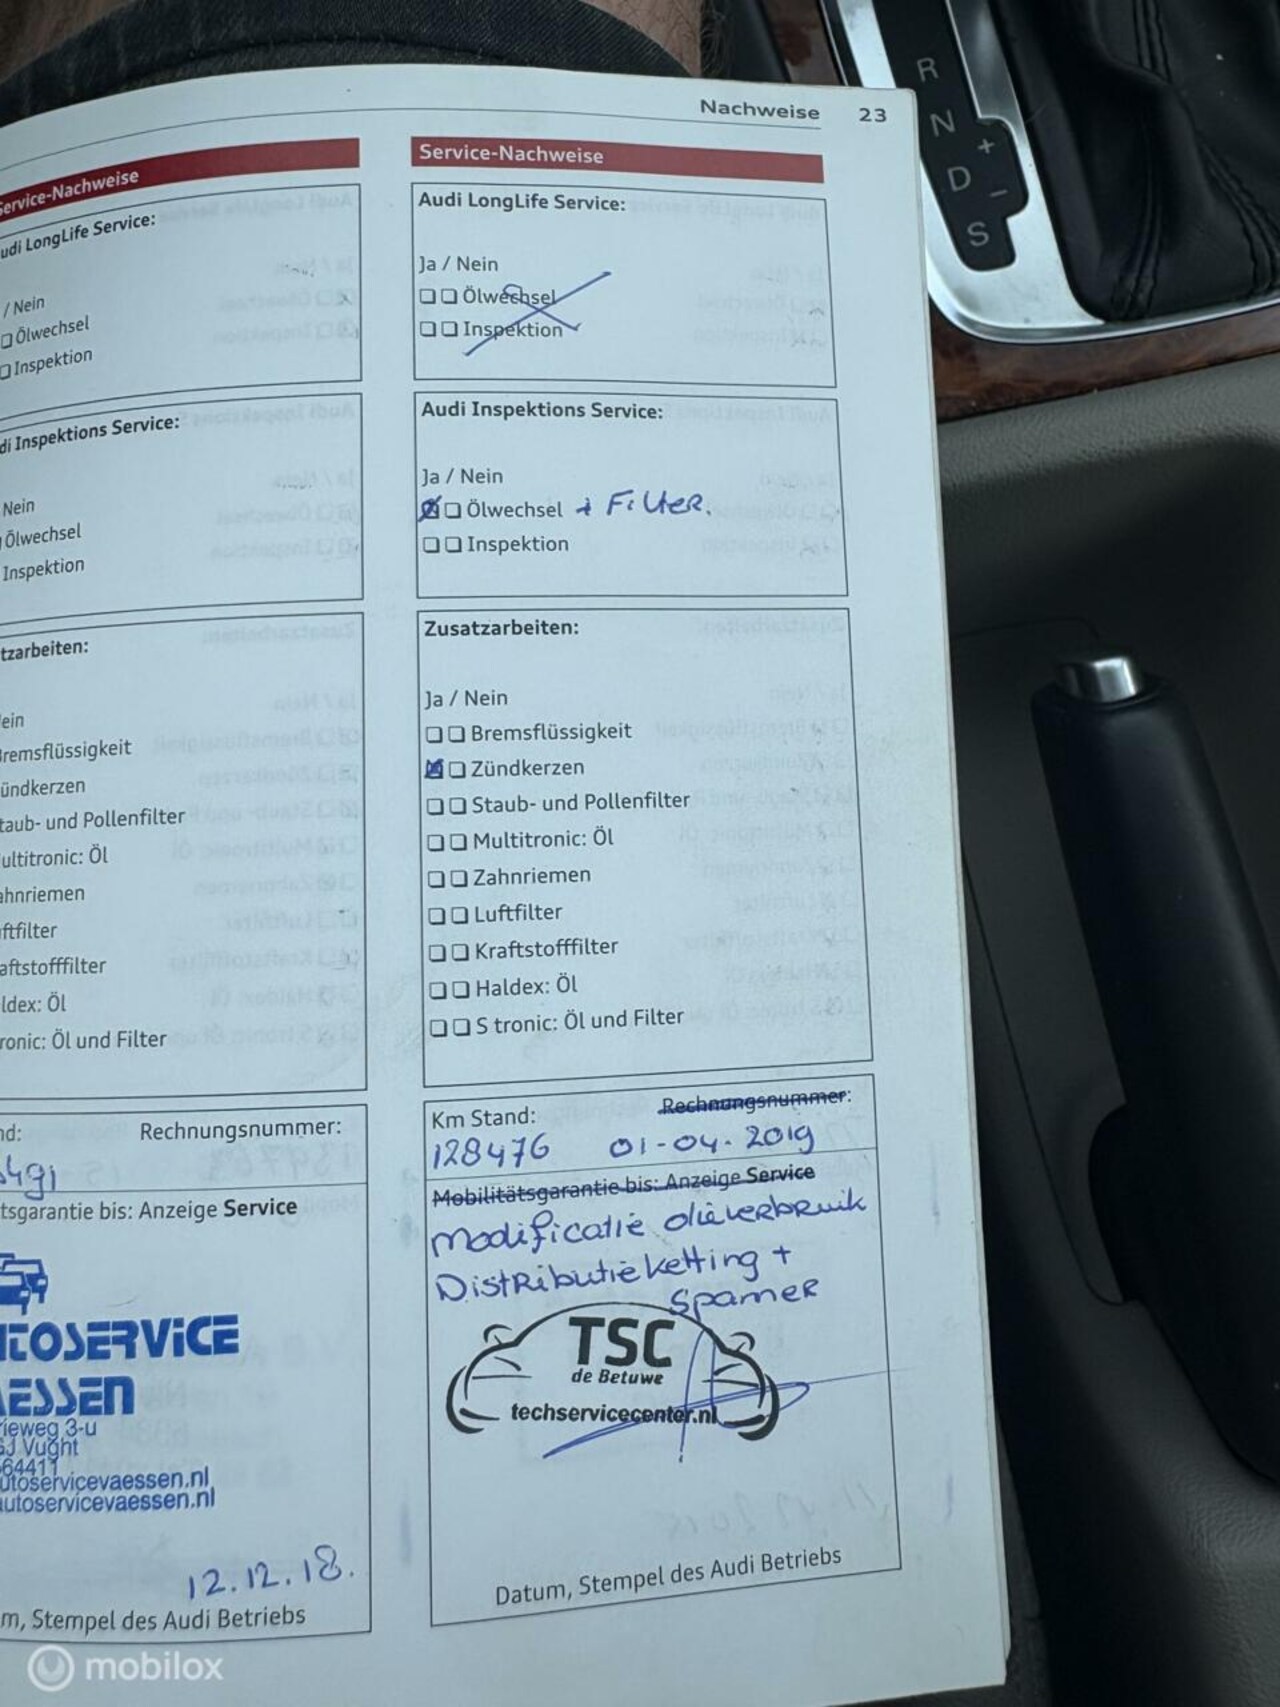 Nachweise 23
Service-Nachweise
udi LongLife Service:
/ Nein
Ölwechsel
Inspektion
di Inspektions Service:
Nein
Ölwechsel
Inspektion
tzarbeiten:
ein
Bremsflüssigkeit
ündkerzen
taub- und Pollenfilter
ultitronic: Öl
ahnriemen
ftfilter
aftstofffilter
ldex: Öl
ronic: Öl und Filter
nd: Rechnungsnummer:
tsgarantie bis: Anzeige Service
TOSERVICE
AESSEN
rieweg 3-u
SJ Vught
64411
utoservicevaessen.nl
autoservicevaessen.nl
12.12.18.
m, Stempel des Audi Betriebs
Service-Nachweise
Audi LongLife Service:
Ja / Nein
Ölwechsel
Inspektion
Audi Inspektions Service:
Ja / Nein
Ölwechsel + Filter.
Inspektion
Zusatzarbeiten:
Ja / Nein
Bremsflüssigkeit
Zündkerzen
Staub- und Pollenfilter
Multitronic: Öl
Zahnriemen
Luftfilter
Kraftstofffilter
Haldex: Öl
S tronic: Öl und Filter
Km Stand: Rechnungsnummer:
128476 01-04-2019
Mobilitätsgarantie bis: Anzeige Service
Modificatie olieverbruik
Distributieketting +
Spanner
TSC
de Betuwe
techservicecenter.nl
Datum, Stempel des Audi Betriebs
R
N
+
D
-
S
mobilox